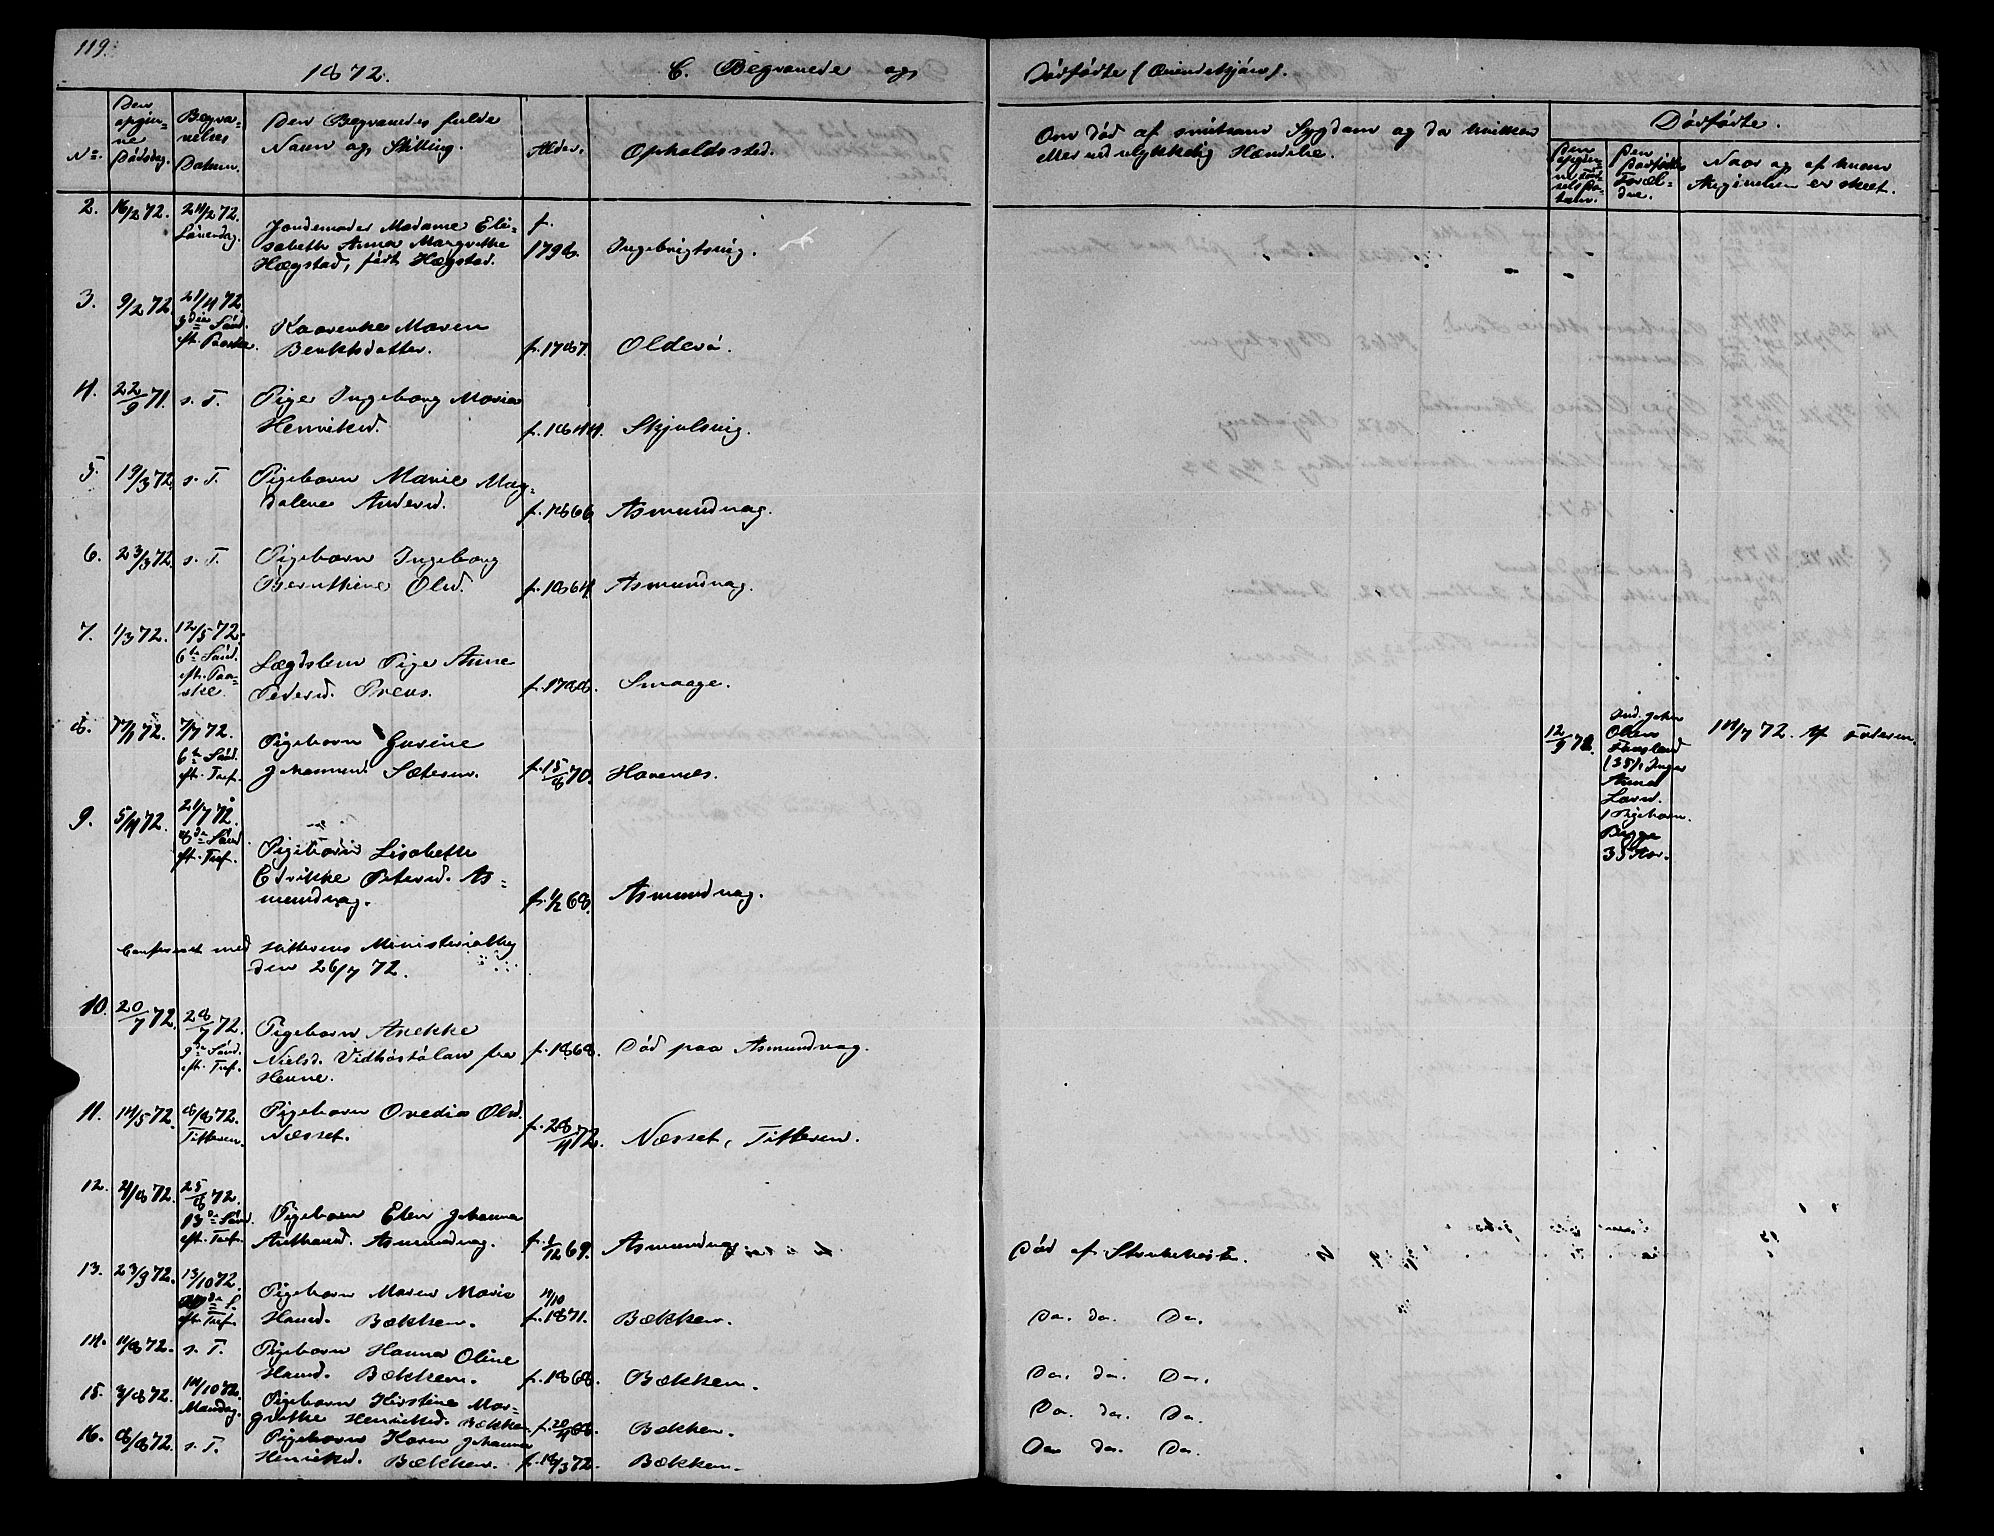 119.
1872.
C. Begravede og
Dødfødte (Qvindekjøn).
No.
Den opgivne Dødsdag.
Begravelses Datum.
Den Begravedes fulde Navn og Stilling.
Alder.
Opholdssted.
Om død af smitsom Sygdom og da hvilken
eller ved ulykkelig Hændelse.
Dødfødte.
Den opgivne Fødselsdatum.
Den Dødfødtes Forældre.
Naar og af hvem
Angivelsen er skeet.
2. 16/2 72. 24/2 72. Løverdag.
Jordemoder Madame Eli-
sabeth Anna Margrethe
Hægstad, født Hægstad.
f. 1798. Ingebrigtsvig.
3. 9/2 72. 21/4 72. 3die Sønd. eft. Paaske.
Kaarenke Maren
Benktsdatter.
f. 1787. Oldevø.
4. 22/9 71. s. T.
Pige Ingeborg Maria
Henriksd.
f. 1844. Skjulsvig.
5. 19/3 72. s. T.
Pigebarn Marie Mag-
dalene Andersd.
f. 1866. Asmundvag.
6. 23/3 72. s. T.
Pigebarn Ingeborg
Bernthine Olsd.
f. 1864. Asmundvag.
7. 1/3 72. 12/5 72. 6te Sønd. eft. Paaske.
Lægdslem Pige Anne
Pedersd. Præus.
f. 1788. Smaage.
8. 72. 7/7 72. 6te Sønd. eft. Tref.
Pigebarn Gurine
Johannesd. Sæteren.
f. 15/8 70. Havnnes.
12/9 72.
Ind. John
Olsen
(35), Inger
Anna
Larsd.
1 Pigebarn.
Begge
35 Aar.
14/7 72. Af Faderen.
9. 5/4 72. 21/7 72. 8de Sønd. eft. Tref.
Pigebarn Lisabeth
Edrikke Petersd. As-
mundvag.
f. 1/2 68. Asmundvag.
Confereret med Hitterens Ministerialbog
den 26/7 72.
10. 20/7 72. 28/7 72. 9de Sønd. eft. Tref.
Pigebarn Anekke
Nielsd. Vidhøstølan fra
Henne.
f. 1868. Død paa Asmundvag.
11. 14/5 72. 8/8 72. Titteren.
Pigebarn Ovedia Olsd.
Næsset.
f. 28/4 72. Næsset, Titteren.
12. 4/8 72. 25/8 72. 13de Sønd. eft. Tref.
Pigebarn Elen Johanna
Anthonsd. Asmundvag.
f. 1/12 69. Asmundvag.
Død af Strubehoste.
13. 23/9 72. 13/10 72. eft. Tref.
Pigebarn Maren Marie
Hansd. Bækken.
4/10
f. 1871. Bækken.
Do. do. Do.
14. 4/8 72. s. T.
Pigebarn Hanna Oline
Hansd. Bækken.
f. 1868. Bækken.
Do. do. Do.
15. 3/8 72. 14/10 72. Mandag.
Pigebarn Kirstine Mar-
grethe Henriksd. Bækken.
f. 20/4 68. Bækken.
Do. do. Do.
16. 8/8 72. s. T.
Pigebarn Karen Johanna
Henriksd. Bækken.
f. 18/3 72. Bækken.
Do. do. Do.